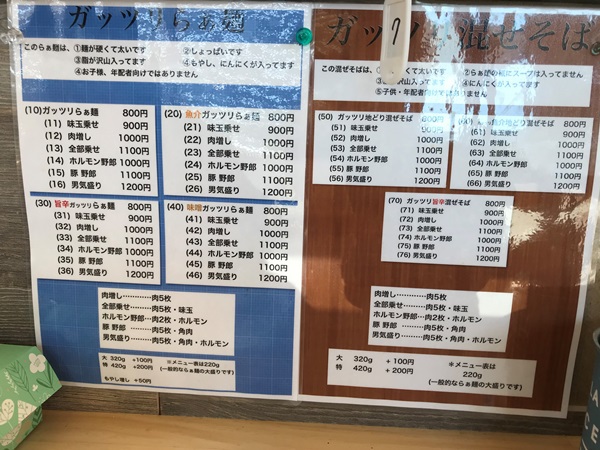 ガッツリらぁ麺
このらぁ麺は、①麺が硬くて太いです
②しょっぱいです
③脂が沢山入ってます
④もやし、にんにくが入ってます
④お子様、年配者向けではありません
(10)ガッツリらぁ麺 800円
(11) 味玉乗せ 900円
(12) 肉増し 1000円
(13) 全部乗せ 1100円
(14) ホルモン野郎 1000円
(15) 豚 野郎 1100円
(16) 男気盛り 1200円
(20) 魚介ガッツリらぁ麺 800円
(21) 味玉乗せ 900円
(22) 肉増し 1000円
(23) 全部乗せ 1100円
(24) ホルモン野郎 1000円
(25) 豚 野郎 1100円
(26) 男気盛り 1200円
(30) 旨辛ガッツリらぁ麺 800円
(31) 味玉乗せ 900円
(32) 肉増し 1000円
(33) 全部乗せ 1100円
(34) ホルモン野郎 1000円
(35) 豚 野郎 1100円
(36) 男気盛り 1200円
(40) 味噌ガッツリらぁ麺 800円
(41) 味玉乗せ 900円
(42) 肉増し 1000円
(43) 全部乗せ 1100円
(44) ホルモン野郎 1000円
(45) 豚 野郎 1100円
(46) 男気盛り 1200円
肉増し…………肉5枚
全部乗せ………肉5枚・味玉
ホルモン野郎…肉2枚・ホルモン
豚 野郎…………肉5枚・角肉
男気盛り………肉5枚・角肉・ホルモン
大 320g +100円
特 420g +200円
※メニュー表は220g
(一般的ならぁ麺の大盛りです)
もやし増し +50円
ガッツリ混ぜそば
この混ぜそばは、
くて太いです
スープは入ってません
沢山入ってます
④にんにくが入ってます
⑤子供・年配者向けではありません
(50) ガッツリ地どり混ぜそば 800円
(51) 味玉乗せ 900円
(52) 肉増し 1000円
(53) 全部乗せ 1100円
(54) ホルモン野郎 1000円
(55) 豚 野郎 1100円
(56) 男気盛り 1200円
混ぜそば 800円
味玉乗せ 900円
(62) 肉増し 1000円
(63) 全部乗せ 1100円
(64) ホルモン野郎 1000円
(65) 豚 野郎 1100円
(66) 男気盛り 1200円
(70) ガッツリ旨辛混ぜそば 800円
(71) 味玉乗せ 900円
(72) 肉増し 1000円
(73) 全部乗せ 1100円
(74) ホルモン野郎 1000円
(75) 豚 野郎 1100円
(76) 男気盛り 1200円
肉増し…………肉5枚
全部乗せ………肉5枚・味玉
ホルモン野郎…肉2枚・ホルモン
豚 野郎…………肉5枚・角肉
男気盛り………肉5枚・角肉・ホルモン
大 320g +100円
特 420g +200円
※メニュー表は
220g
(一般的ならぁ麺の大盛りです)